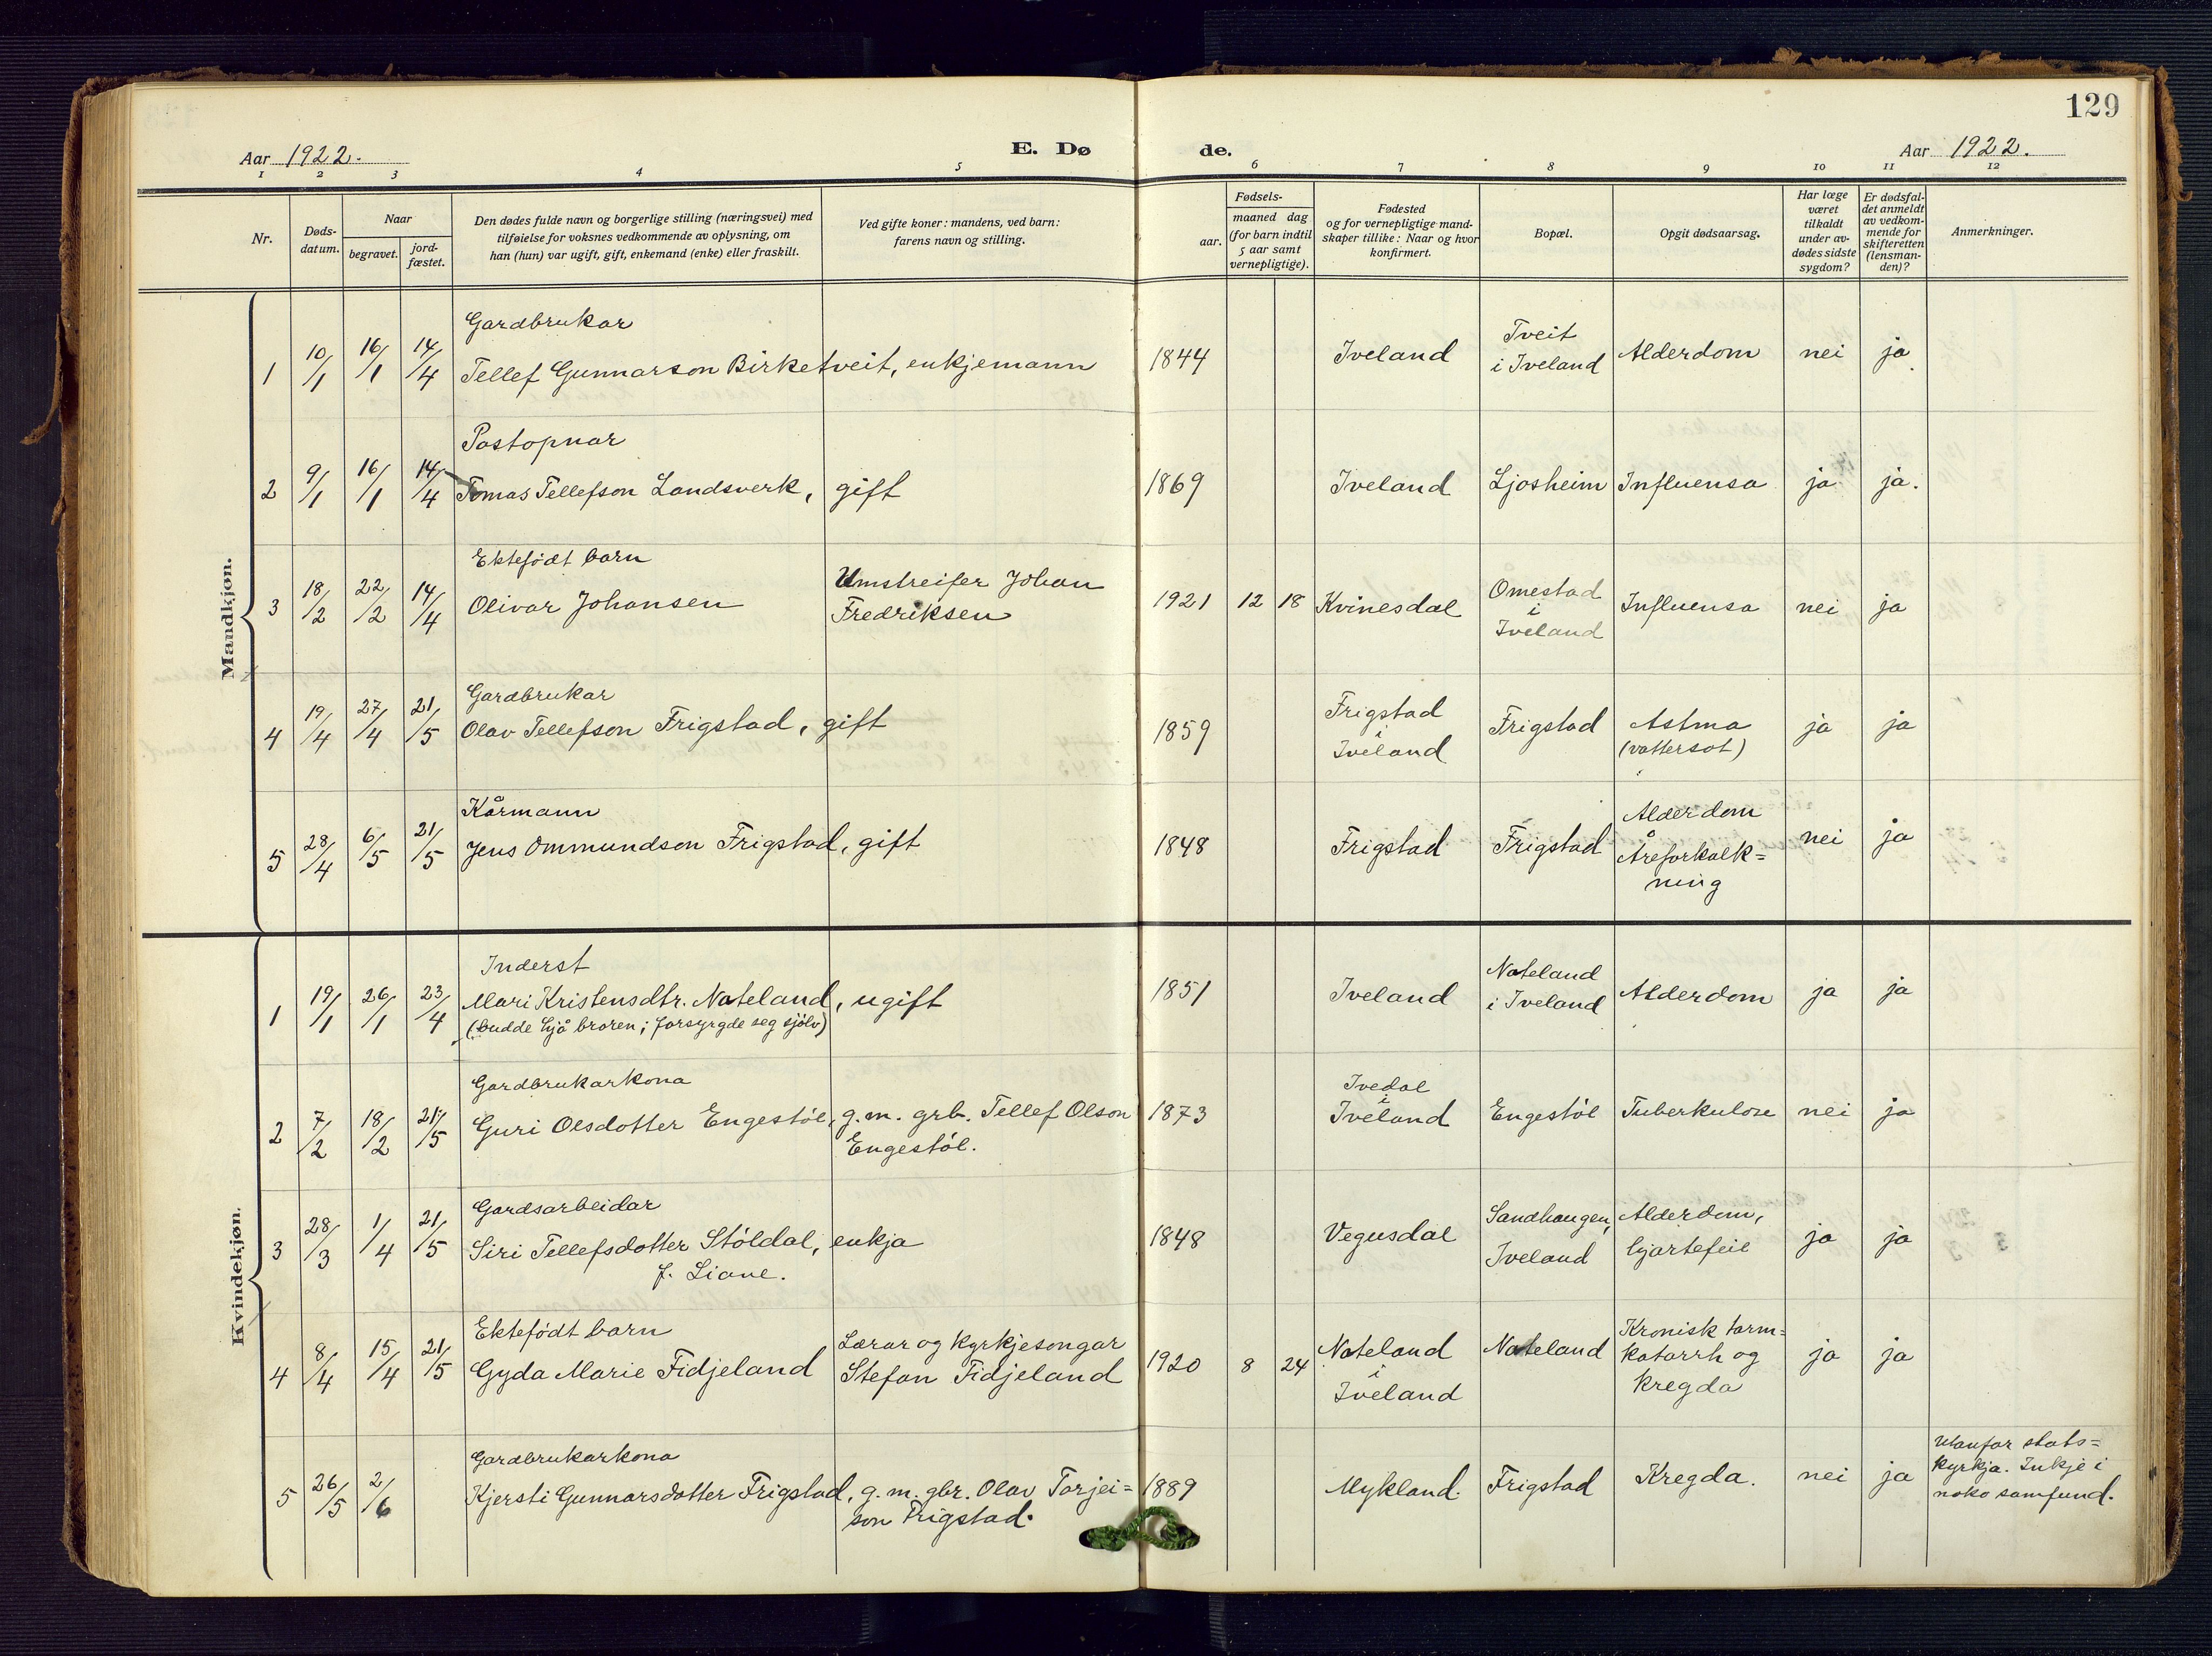 129
Aar 1922. E. Dø de. Aar 1922.
1 2 3 4 5 6 7 8 9 10 11 12
Nr.
Døds-
datum.
Naar
begravet.
jord-
fæstet.
Den dødes fulde navn og borgerlige stilling (næringsvei) med
tilføielse for voksnes vedkommende av oplysning, om
han (hun) var ugift, gift, enkemand (enke) eller fraskilt.
Ved gifte koner: mandens, ved barn:
farens navn og stilling.
Fødsels-
aar.
maaned dag
(for barn indtil
5 aar samt
vernepligtige).
Fødested
og for vernepligtige mand-
skaper tillike: Naar og hvor
konfirmert.
Bopæl.
Opgit dødsaarsag.
Har læge
været
tilkaldt
under av-
dødes sidste
sygdom?
Er dødsfal-
det anmeldt
av vedkom-
mende for
skifteretten
(lensman-
den)?
Anmerkninger.
Mandkjøn.
Gardbrukar
1 10/1 16/1 14/4 Tellef Gunnarson Birketveit, enkjemann 1844 Iveland Tveit
i Iveland Alderdom nei ja.
Postopnar
2 9/1 16/1 14/4 Tomas Tellefson Landsverk, gift 1869 Iveland Ljosheim Influensa ja ja.
Ektefödt barn
3 18/2 22/2 14/4 Olivar Johansen Umstreifer Johan
Fredriksen 1921 12 18 Kvinesdal Omestad
i
Iveland Influensa nei ja
Gardbrukar
4 19/4 27/4 21/5 Olav Tellefson Frigstad, gift 1859 Frigstad
i
Iveland Frigstad Astma
(vattersot) ja ja
Kårmann
5 28/4 6/5 21/5 Jens Ommundson Frigstad, gift 1848 Frigstad Frigstad Alderdom
Åreforkalk=
ning nei ja
Kvindekjøn.
Inderst
1 19/1 26/1 23/4 Mari Kristensdtr. Nateland, ugift
(budde hjå broren; forsyrgde seg sjölv) 1851 Iveland Nateland
i Iveland Alderdom ja ja
Gardbrukarkona
2 7/2 18/2 21/5 Guri Olsdotter Engestöl, g.m. grb. Tellef Olson
Engestöl. 1873 Ivedal
i
Iveland Engestöl Tuberkulose nei ja
Gardsarbeidar
3 28/3 1/4 21/5 Siri Tellefsdotter Stöldal, enkja
f. Liane. 1848 Vegusdal Sandhaugen,
Iveland Alderdom,
hjartefeil ja ja
Ektefödt barn
4 8/4 15/4 21/5 Gyda Marie Fidjeland Lærar og kyrkjesongar
Stefan Fidjeland 1920 8 24 Nateland
i
Iveland Nateland Kronisk tarm=
katarrh og
kregda ja ja
Gardbrukarkona
5 26/5 2/6 Kjersti Gunnarsdotter Frigstad, g.m. gbr. Olav Torjei=
son Frigstad. 1889 Mykland. Frigstad Kregda. nei ja Utanfor stats=
kyrkja. Inkje i
noko samfund.